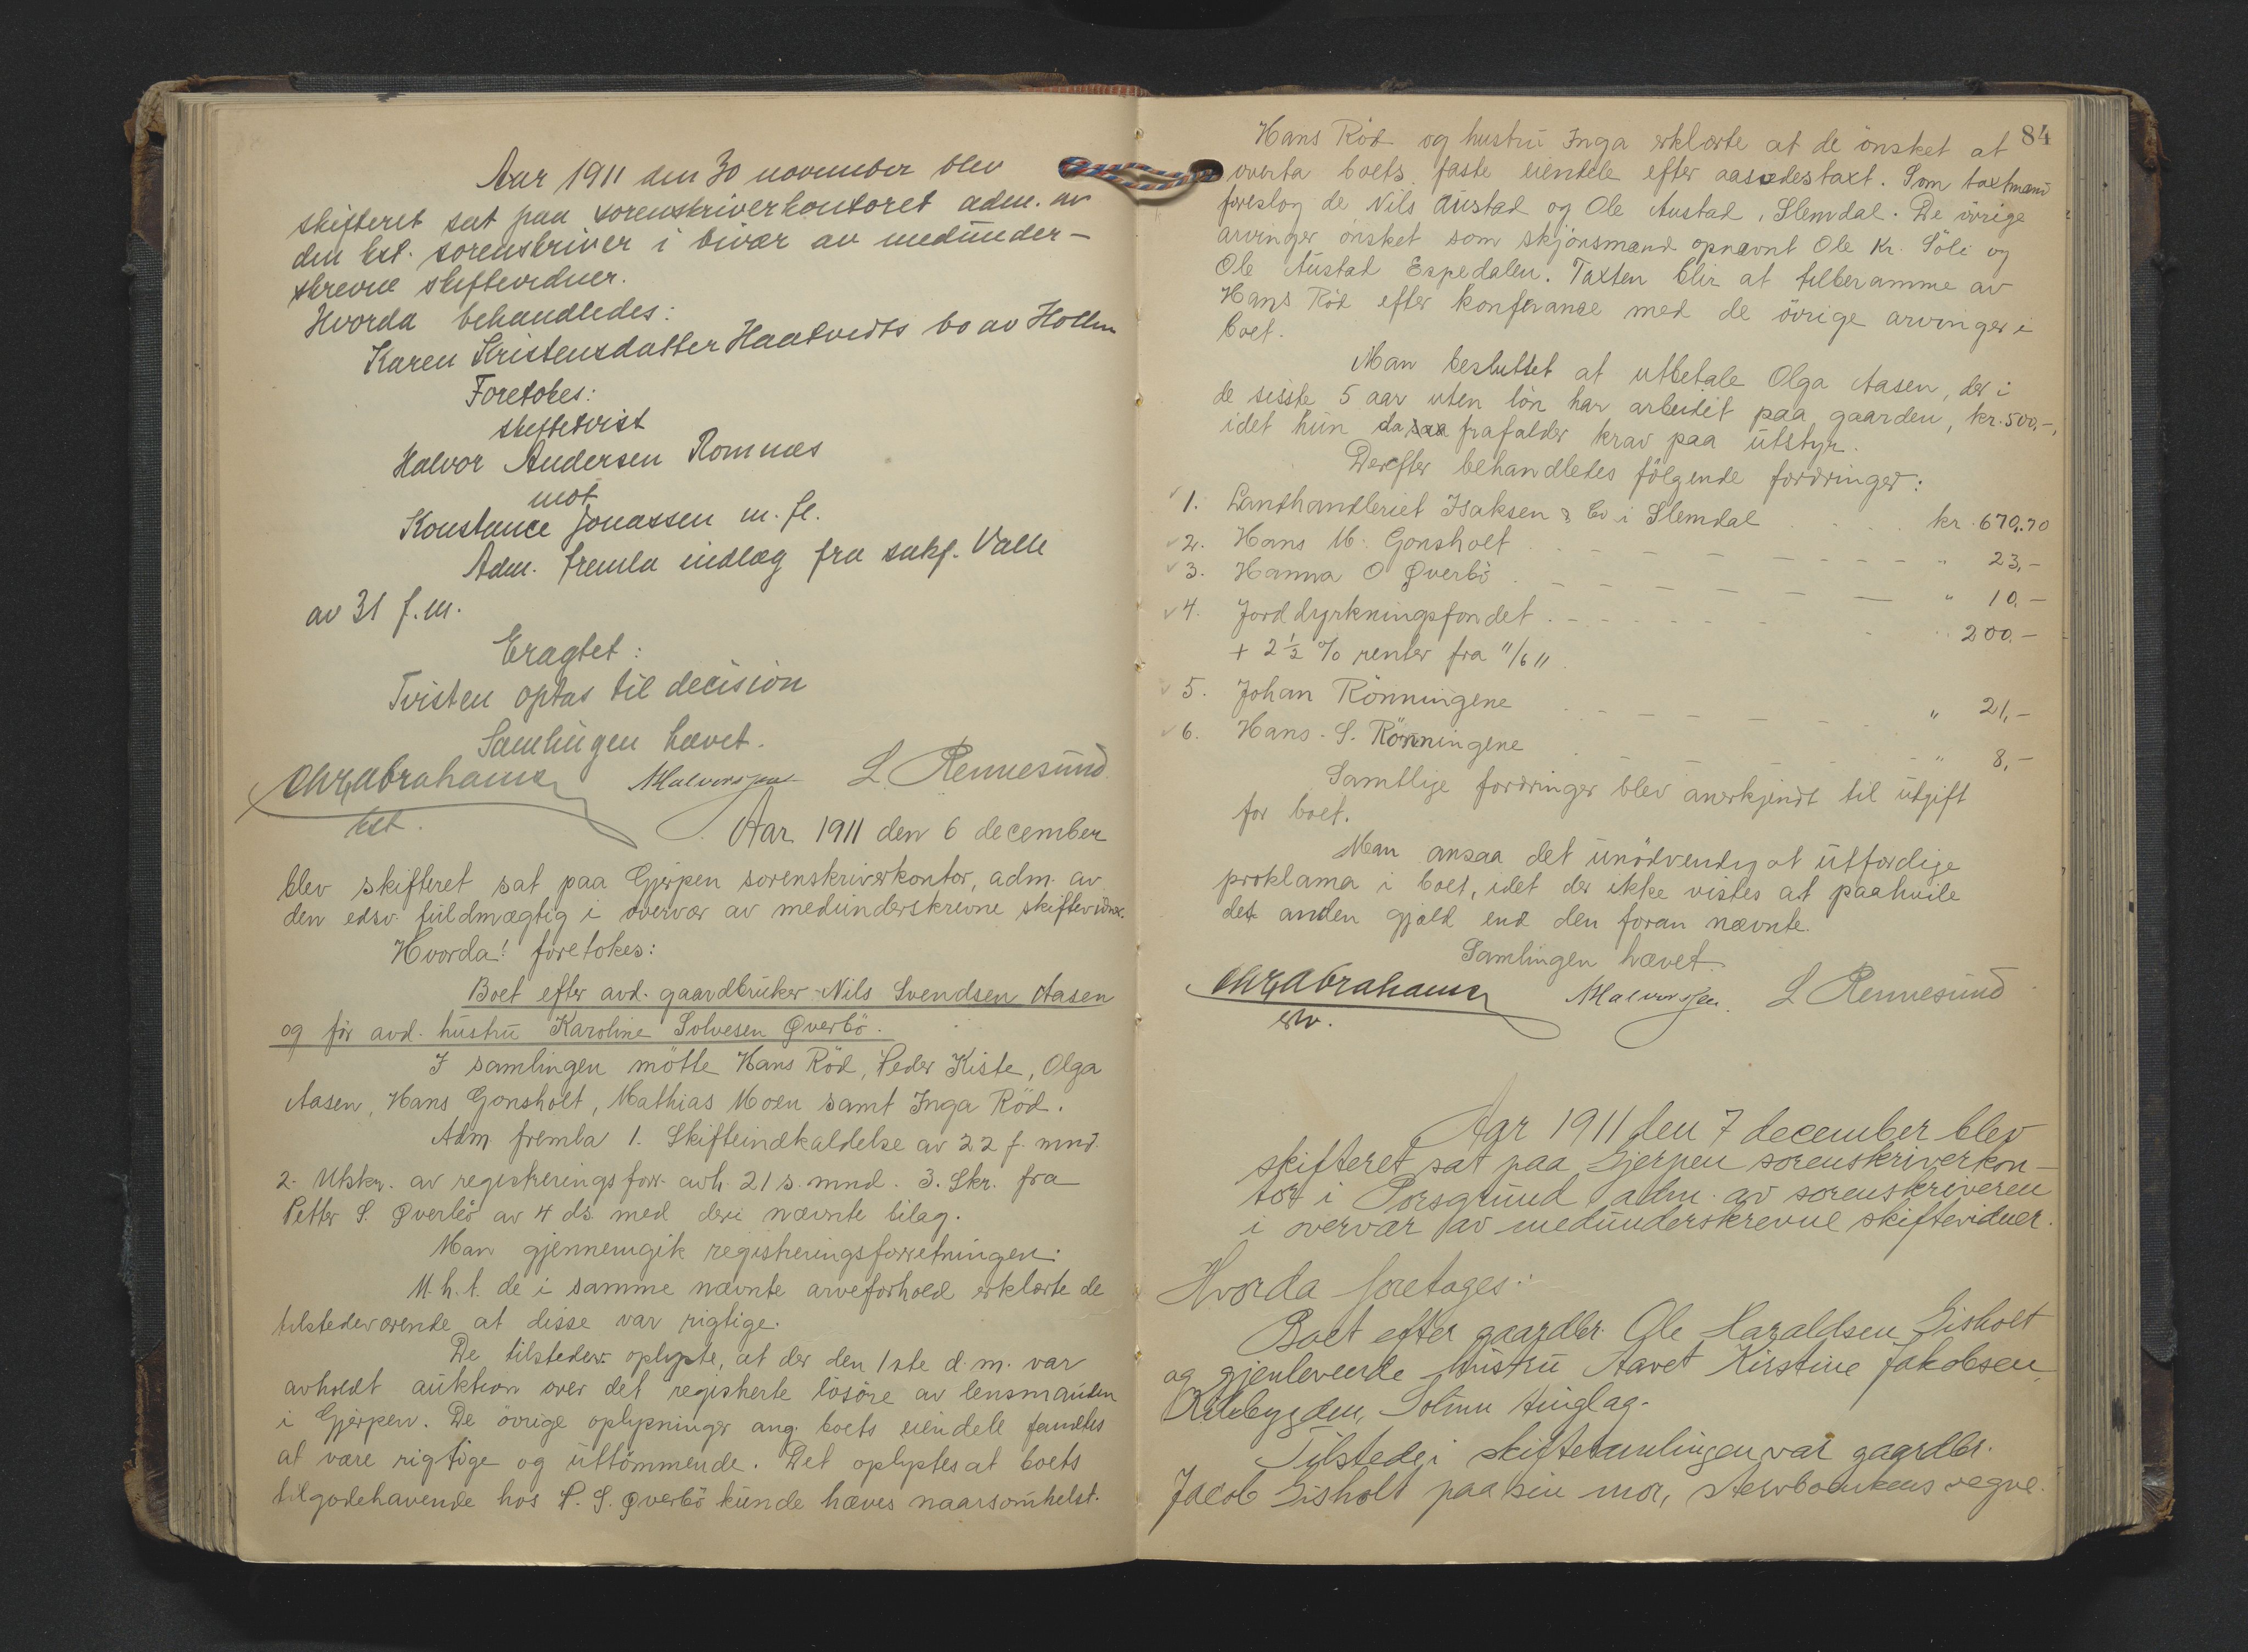 Aar 1911 den 30 november blev
skifteret sat paa sorenskriverkontoret adm. av
den kst. sorenskriver i bivær av medunder-
skrevne skiftevidner.
Hvorda behandledes:
Karen Kristensdatter Haatvedts bo av Hollen
Foretokes:
skiftetvist
Halvor Andersen Romnes
mot
Konstance Jonassen m. fl.
Adm. fremla indlæg fra sakf. Valle
av 31 f.m.
Eragtet:
Tvisten optas til decision
Samlingen hævet.
Chr Abrahamsen Halvorsen L. Rennesund
kst.
Aar 1911 den 6 december
blev skifteret sat paa Gjerpen sorenskriverkontor, adm. av
den edsv. fuldmægtig i overvær av medunderskrevne skiftevidner.
Hvorda! foretokes:
Boet efter avd. gaardbruker Nils Svendsen Aasen
og før avd. hustru Karoline Solvesen Øverbö.
I samlingen mötte Hans Röd, Peder Kiste, Olga
Aasen, Hans Gonsholt, Mathias Moen samt Inga Röd.
Adm. fremla 1. Skifteindkaldelse av 22 f. mnd.
2. Utskr. av registreringsforr. avh. 21 s. mnd. 3. Skr. fra
Petter S. Øverbö av 4 ds. med deri nævnte bilag.
Man gjennemgik registreringsforretningen.
M.h.t. de i samme nævnte arveforhold erklærte de
tilstedeværende at disse var rigtige.
De tilstedev. oplyste, at der den 1ste d.m. var
avholdt auktion over det registrerte lösöre av lensmanden
i Gjerpen. De övrige oplysninger ang. boets eiendele fandtes
at være rigtige og uttömmende. Det oplystes at boets
tilgodehavende hos P. S. Øverbö kunde hæves naarsomhelst.
84
Hans Röd og hustru Inga erklærte at de önsket at
overta boets faste eiendele efter aasædestaxt. Som taxtmænd
foreslog de Nils Austad og Ole Austad, Slemdal. De övrige
arvinger önsket som skjönsmænd opnævnt Ole Kr. Söli og
Ole Austad Espedalen. Taxten blir at tilberamme av
Hans Röd efter konferanse med de övrige arvinger i
boet.
Man besluttet at utbetale Olga Aasen, der i
de sisste 5 aar uten lön har arbeidet paa gaarden, kr. 500,-,
idet hun da frafalder krav paa utstyr.
Derefter behandledes fölgende fordringer:
1. Landhandleriet Isaksen & Co i Slemdal kr. 670.70
2. Hans M. Gonsholt " 23,-
3. Hanna O Øverbö " 10.-
4. Jorddyrkningsfondet " 200.-
+ 2 1/2 % renter fra 11/6 11
5. Johan Rönningene " 21,-
6. Hans S. Rönningene " 8,-
Samtlige fordringer blev anerkjendt til utgift
for boet.
Man ansaa det unödvendig at utfærdige
proklama i boet, idet der ikke vistes at paahvile
det anden gjæld end den foran nævnte.
Samlingen hævet.
Chr Abrahamsen Halvorsen L Rennesund
edsv.
Aar 1911 den 7 december blev
skifteret sat paa Gjerpen sorenskriverkon-
tor i Porsgrund adm. av sorenskriveren
i overvær av medunderskrevne skiftevidner.
Hvorda foretages:
Boet efter gaardbr. Ole Haraldsen Gisholt
og gjenlevende hustru Aavet Kirstine Jakobsen,
Kilebygden, Solum tinglag.
Tilstede i skiftesamlingen var gaardbr.
Jacob Gisholt paa sin mor, stervboenkens vegne.